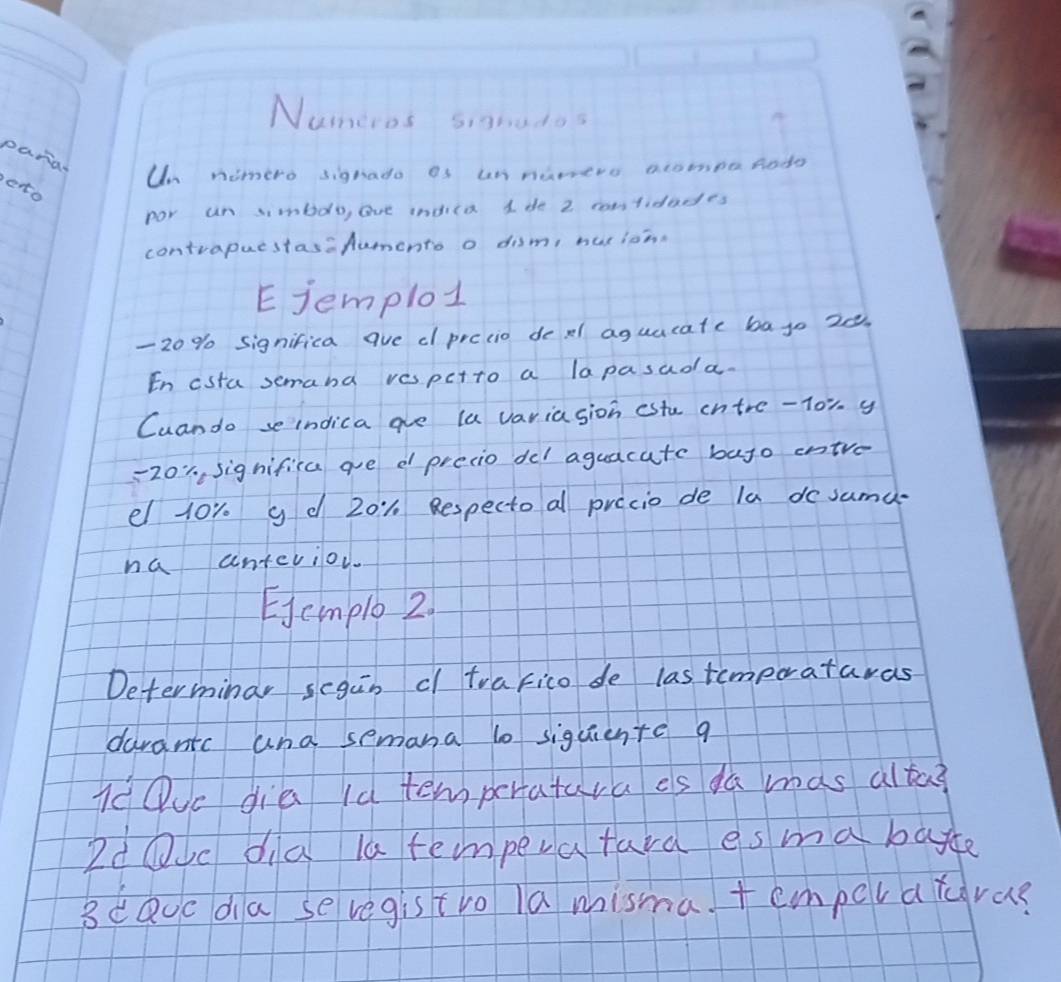 paña.
erto
Numeros signados
Un número signado es un número acompañado
por un simbolo, Que indica 1 de 2 cantidades
contrapuestas: Aumento o disminucion.
Ejemplo 1
-20% significa que el precio de el aguacate bajo 20%
En esta semana respecto a la pasada.
Cuando se indica que la variasión esta entre -10% y
-20%, significa que el precio del aguacate bajo entre
el 10% y el 20% Respecto al precio de la de sama-
na anterior.
Ejemplo 2.
Determinar según el trafico de las temperaturas
durante una semana lo siguiente 9
1¿Que dia la temperatura es da mas alta?
2¿Que dia la temperatura es ma baje
3¿Que dia se registro la misma. temperatura?